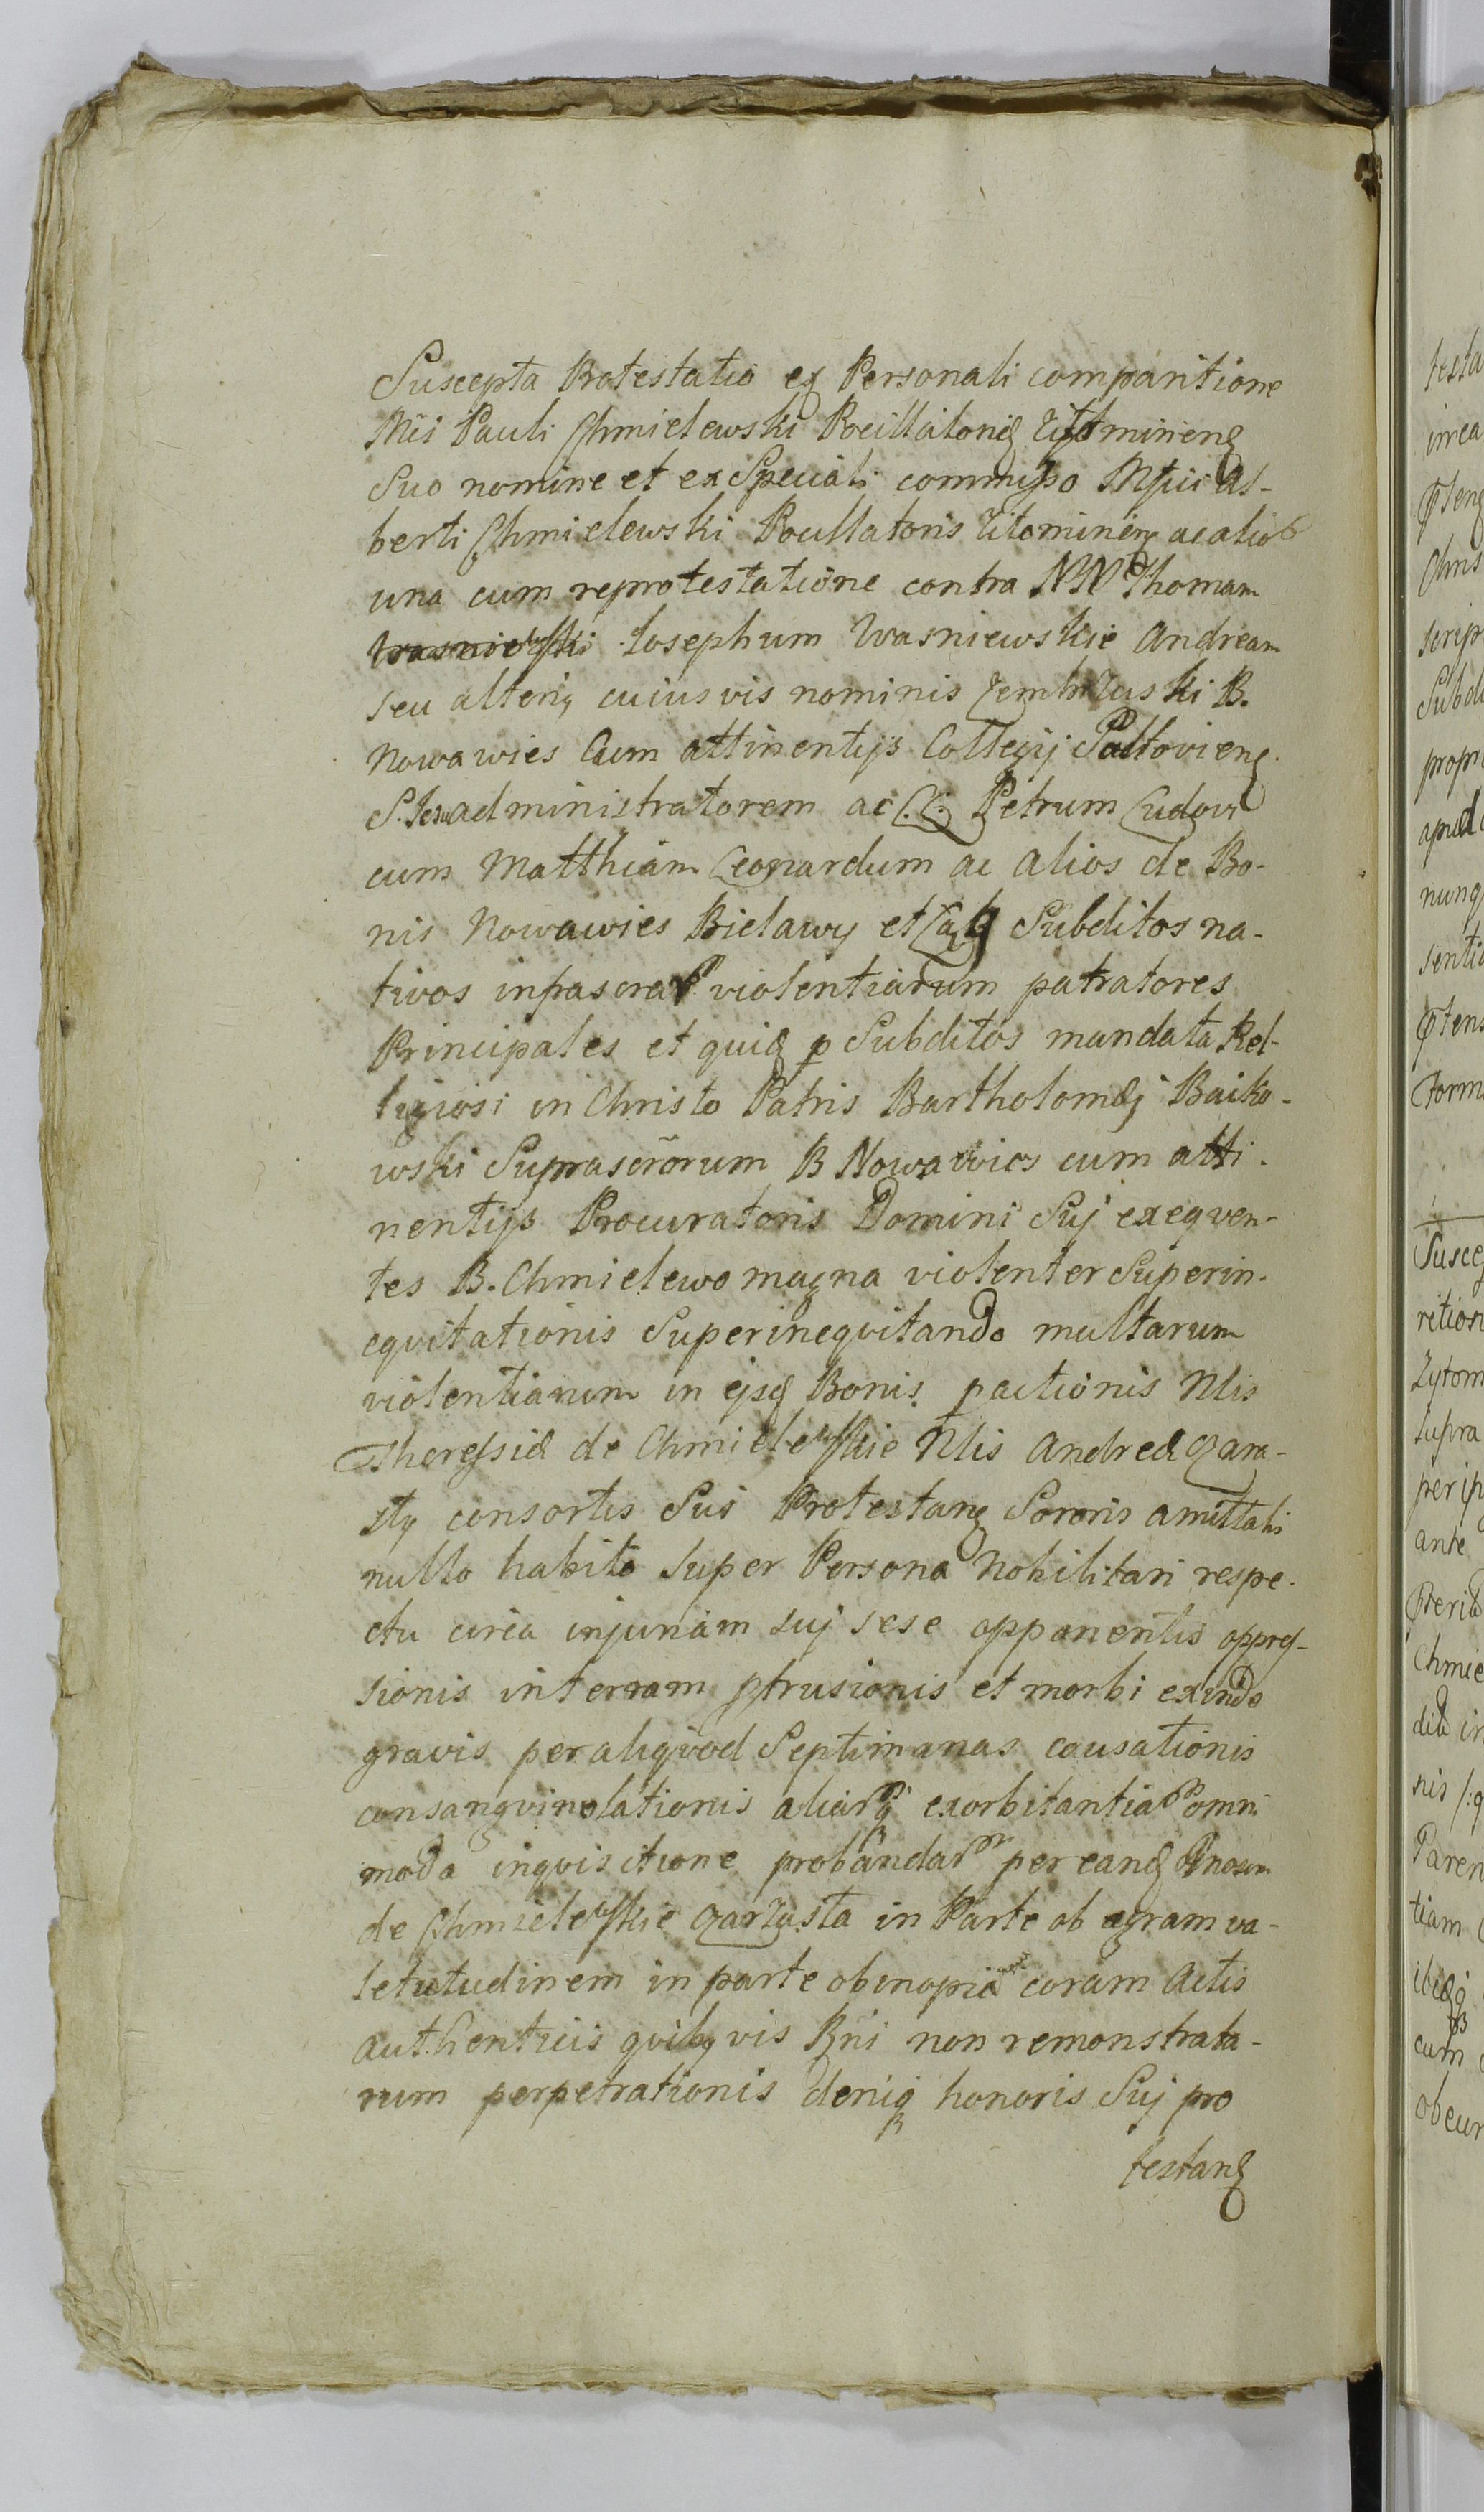 Suscepta Protestatio ex Personali comparitione
Mci Pauli Chmielewski Pocillatoris Zitominens
Suo nomine et ex Speciali commisso Mfici Al-
berti Chmielewski Pocillatoris Zitominens ac alior
una cum reprotestatione contra NN Thomam
Wasniewski Iosephum Wasniewskie Andream
seu alterig cuiusvis nominis Zembrzuski B.
Nowawies Cum attinentijs Collegij Pultoviens
S. Jesu administratorem ac LL: Petrum Ludovi
cum Matthiam Leonardum ac alios de Bo-
nis Nowawies Bielawy et Subditos na-
tivos infrascrar violentiarum patratores
Principales et quid p Subditos mandata Rel-
ligiosi in Christo Patris Bartholomæj Baiko-
wski Suprascrõrum B Nowawies cum atti-
nentijs Procuratoris Domini Suj exeqven-
tes B. Chmielewo magna violenter Superin-
eqvitationis Superineqvitando multarum
violentiarum in ejsd Bonis pactionis Nlis
Theressiæ de Chmielewskie Nlis Andreæ Czarza-
sty consortis Sui Protestans Sororis amittali
nullo habito Super Persona Nobilitari respe-
ctu circa injuriam suj sese opponentis oppres-
sionis in terram ptrusionis et morbi exinde
gravis per aliqvod Septimanas causationis
consangvinolationis aliarq exorbitantiar omni
moda inqvisitione probandar per eand Gnosam
de Chmielewskie Czarzasta in Parte ob ægram va-
letutudinem in parte ob inopiã coram Actis
authenticis qvibqvis Rni non remonstrata-
rum perpetrationis deniq honoris Suj pro
testans